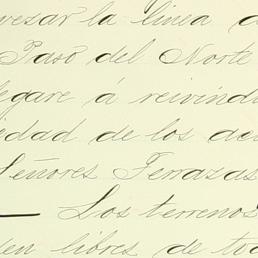 vesar la linea d
Paso del Norte
legare á reivind
iedad de los de
Señores Terrazas
— Los terrenos
en libres de to